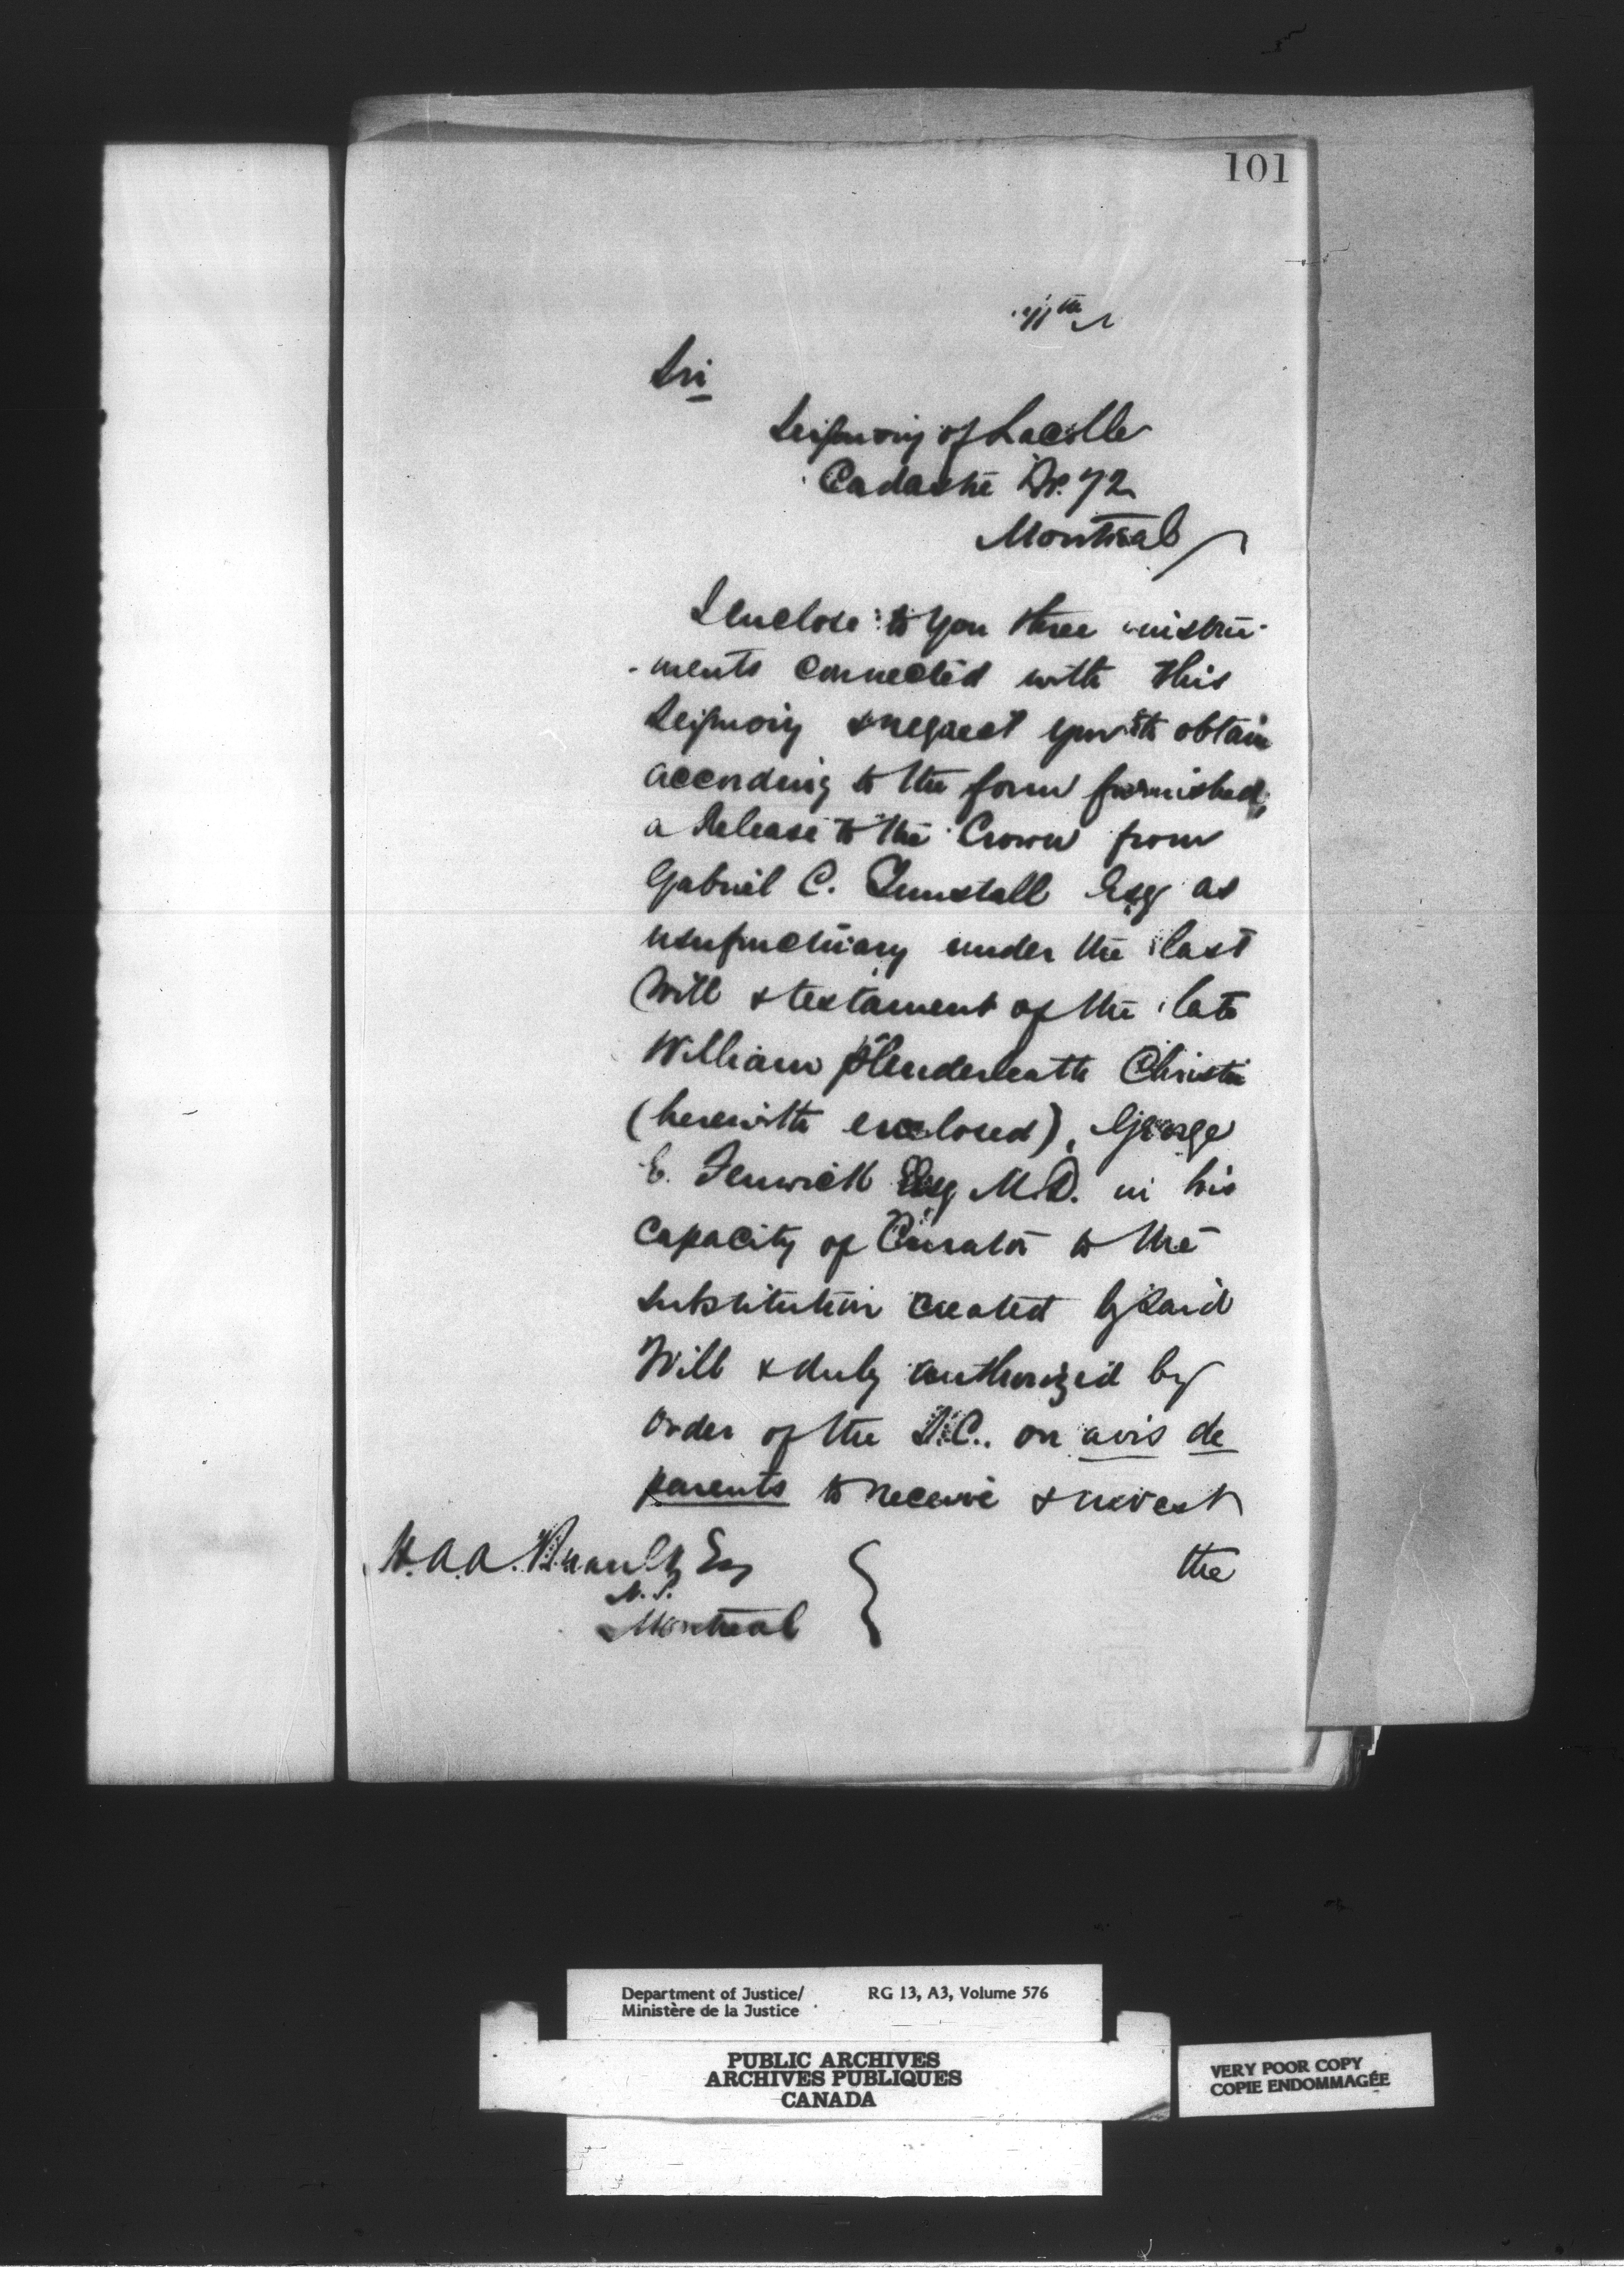 101
11th
Sir
Seigniory of Lacolle
Cadastre No. 72
Montreal
I enclose to you three instru-
-ments connected with this
Seigniory & request you to obtain
according to the form furnished,
a Release to the Crown from
Gabriel C. Tunstall Esq as
usufructuary under the last
Will & testament of the late
William Plenderleath Christie
(herewith enclosed), George
E. Fenwick Esq M.D. in his
capacity of Curator to the
substitution created by said
Will & duly authorized by
order of the S.C. on avis de
parents to receive & invest
the
H.A.A. Brault Esq
N.P.
Montreal
Department of Justice/
Ministère de la Justice
RG 13, A3, Volume 576
PUBLIC ARCHIVES
ARCHIVES PUBLIQUES
CANADA
VERY POOR COPY
COPIE ENDOMMAGÉE